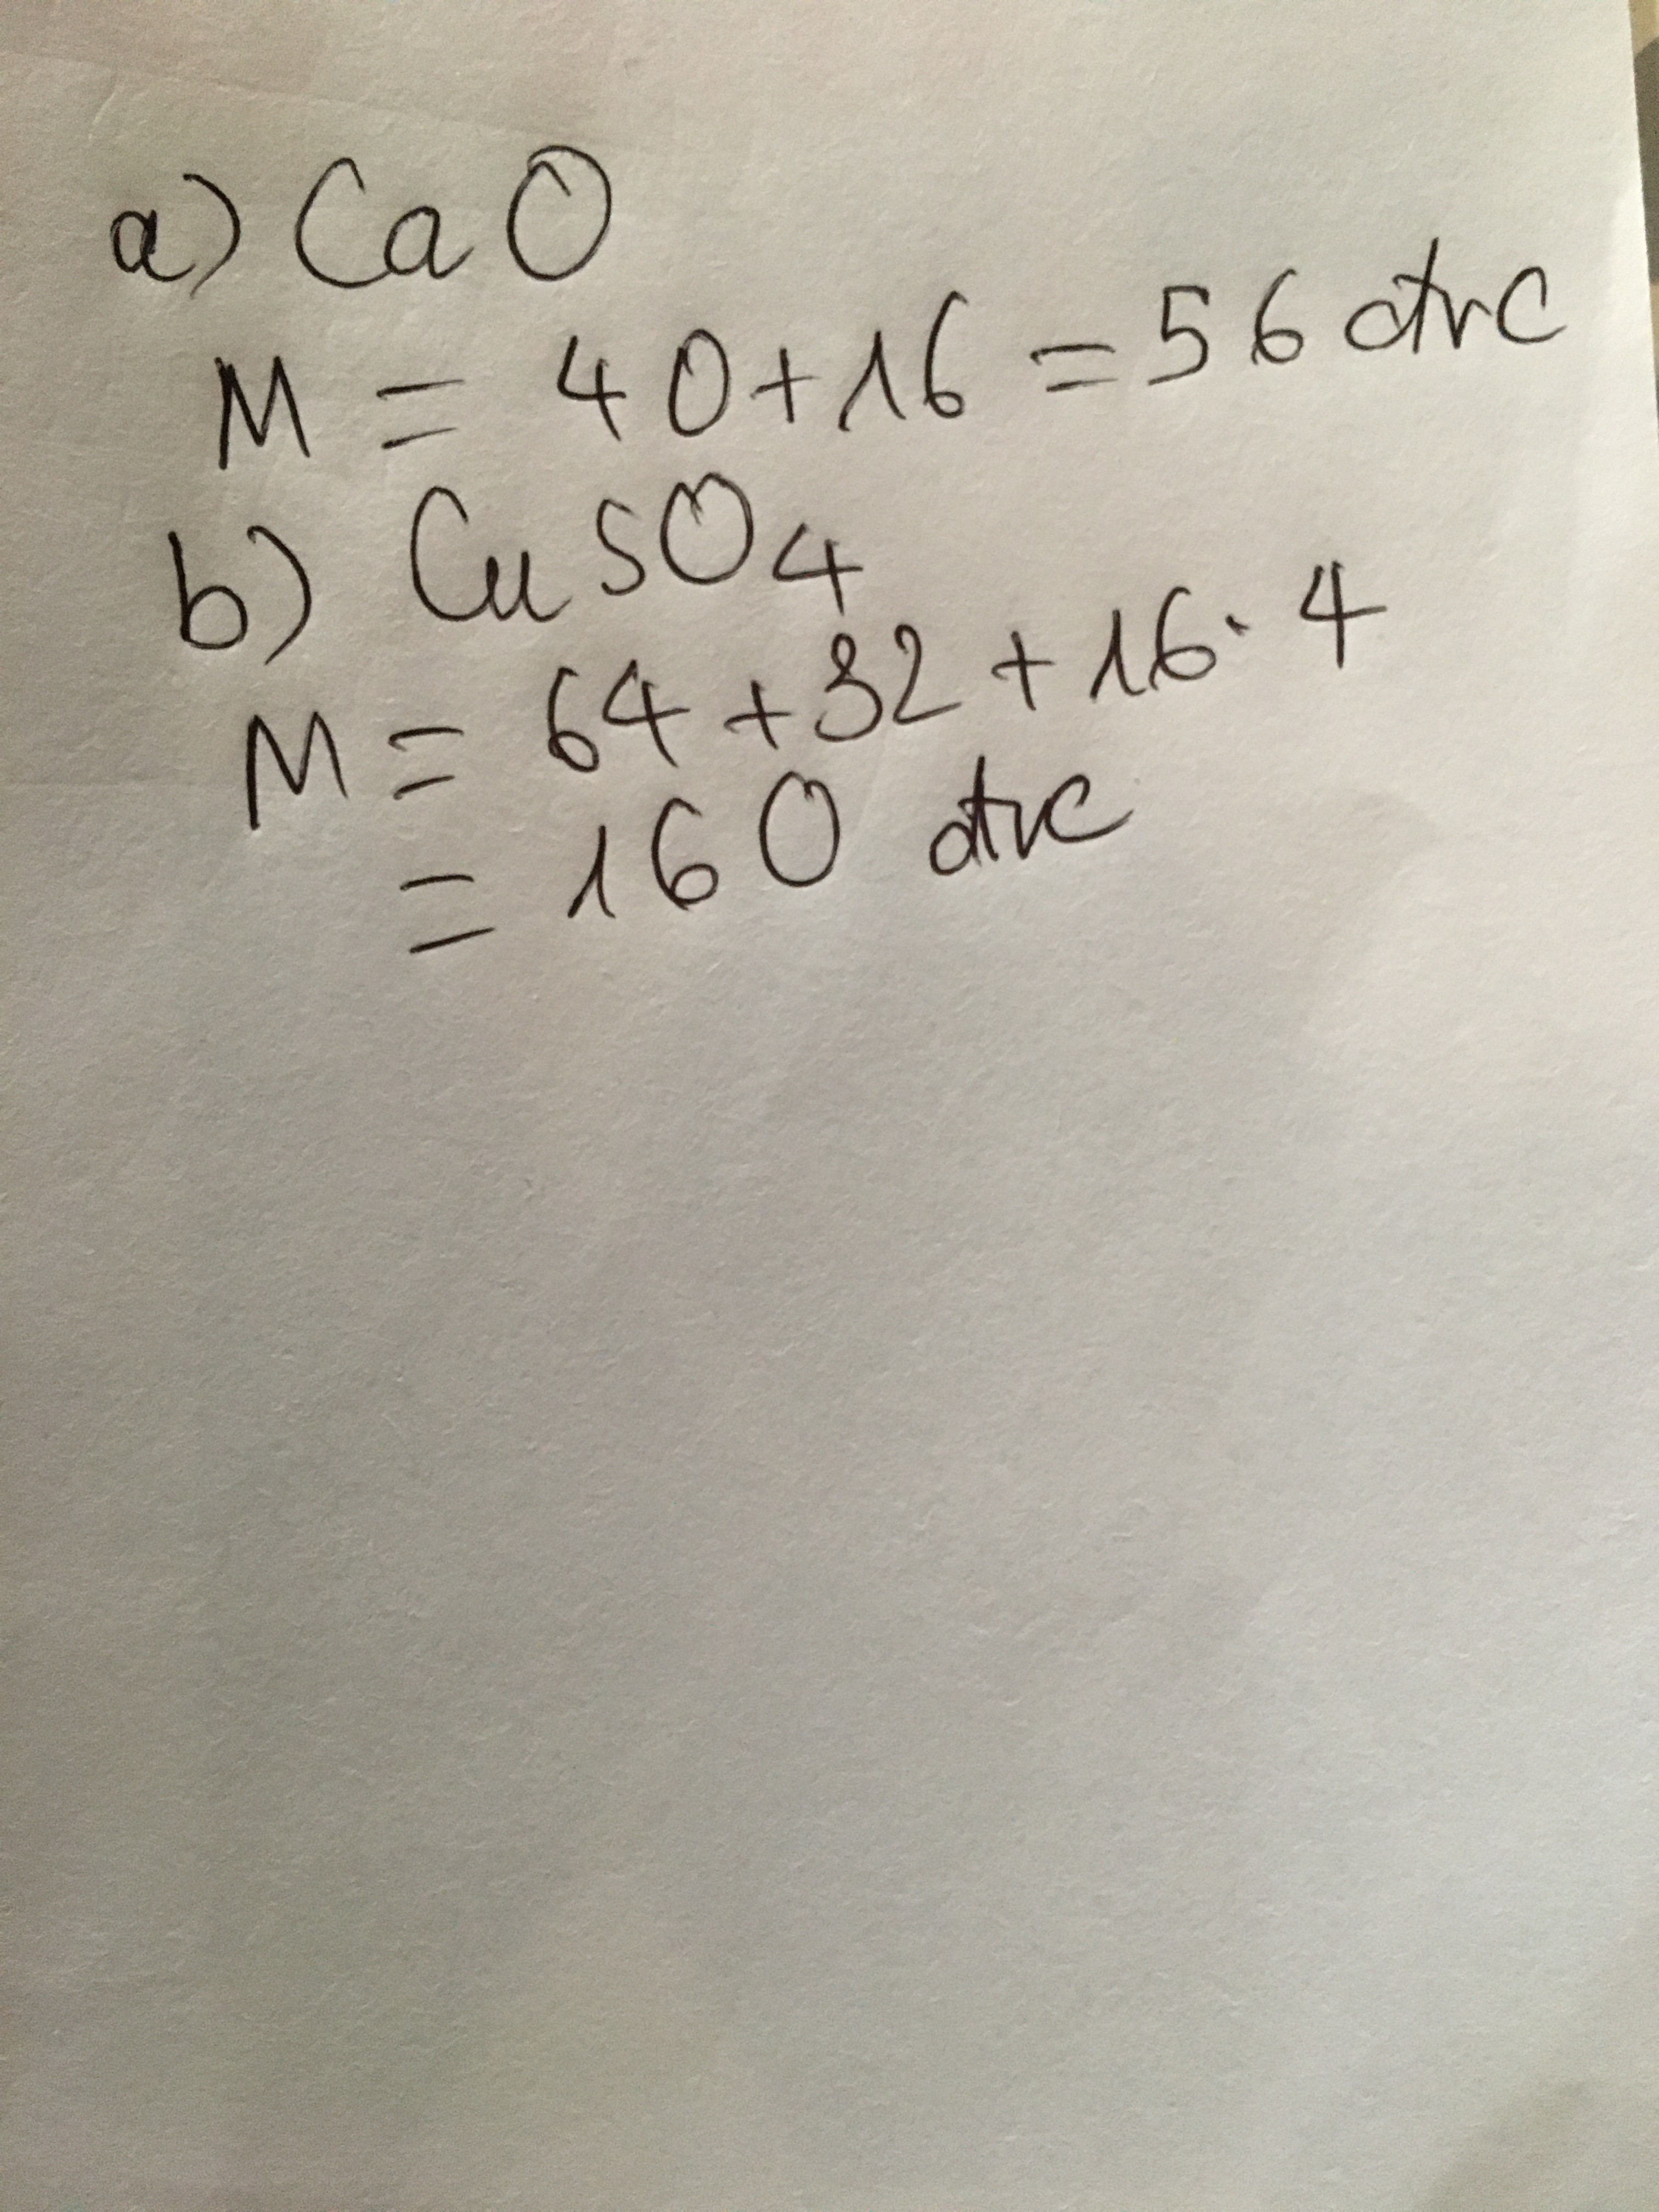 a) CaO
M = 40+16 = 56 đvc
b) CuSO4
M = 64 + 32 + 16 . 4
= 160 đvc